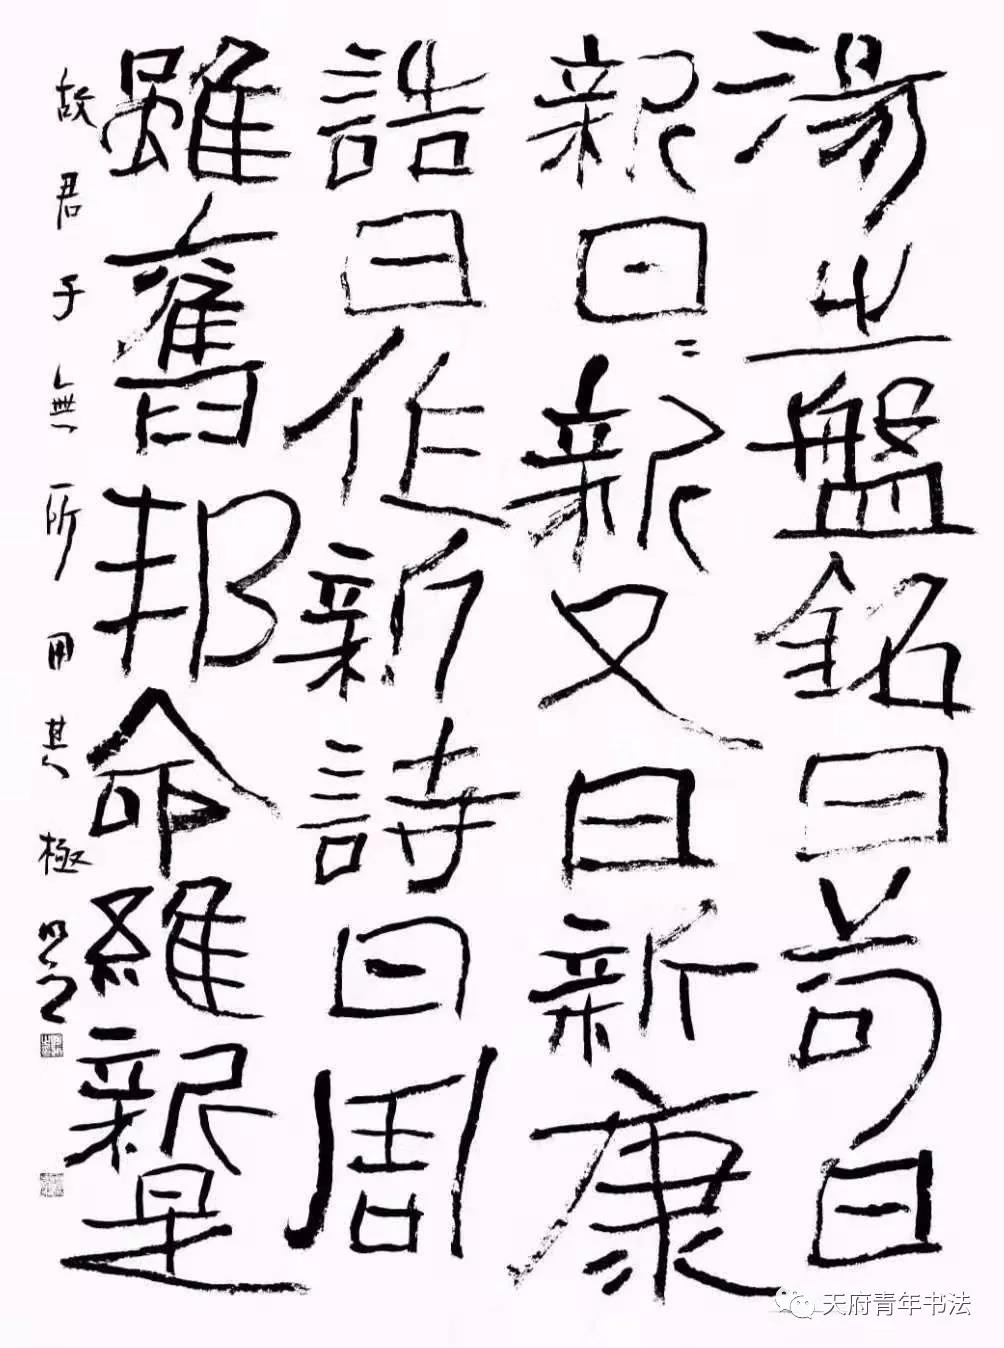 湯之盤銘曰苟日
新日〻新又日新康
誥曰作新詩曰周
雖舊邦命維新是
故君子無所用其極
天府青年书法